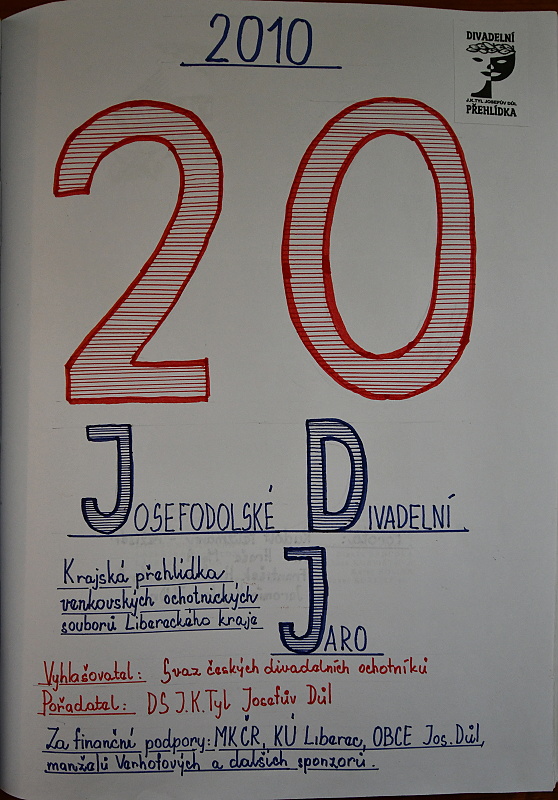 2010
DIVADELNÍ
J.K.TYL JOSEFŮV DŮL
PŘEHLÍDKA
20
JOSEFODOLSKÉ DIVADELNÍ
JARO
Krajská přehlídka
venkovských ochotnických
souborů Libereckého kraje
Vyhlašovatel: Svaz českých divadelních ochotníků
Pořadatel: DS J.K.Tyl Josefův Důl
Za finanční podpory: MKČR, KÚ Liberec, OBCE Jos.Důl,
manželů Venhotových a dalších sponzorů.